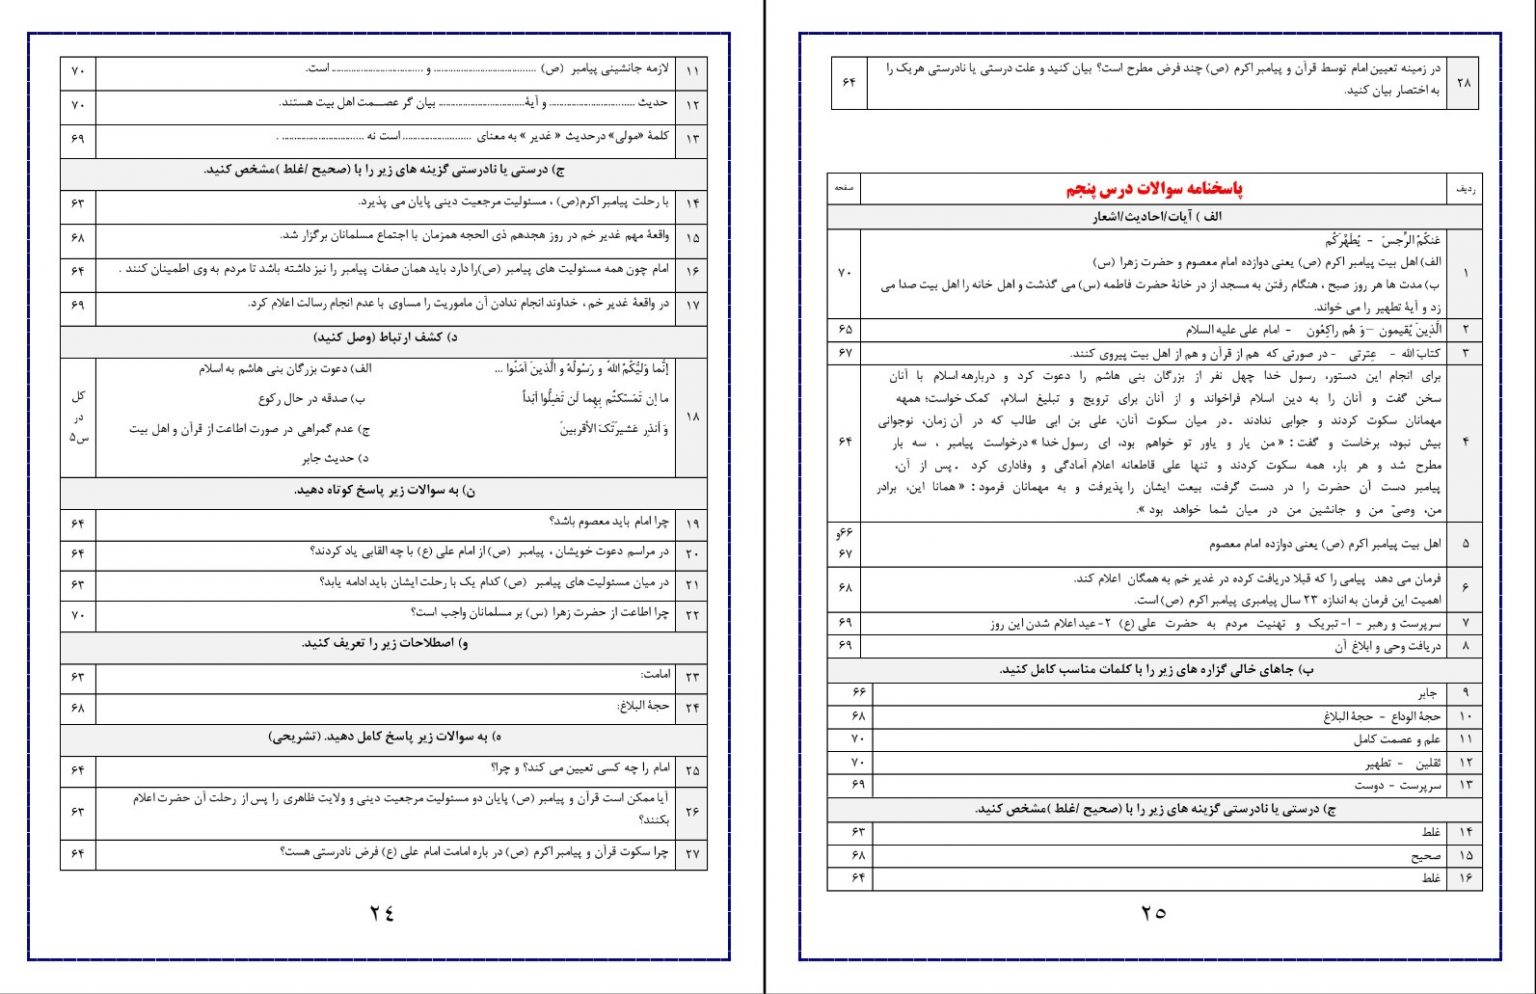 ۱۱ لازمه جانشینی پیامبر (ص) .................................... و ................................ است. ۷۰
۱۲ حدیث .............................. و آیهٔ.............................. بیان گر عصــمت اهل بیت هستند. ۷۰
۱۳ کلمهٔ «مولی» درحدیث « غدیر » به معنای ........................ است نه ............................. . ۶۹
ج) درستی یا نادرستی گزینه های زیر را با (صحیح /غلط )مشخص کنید.
۱۴ با رحلت پیامبر اکرم(ص) ، مسئولیت مرجعیت دینی پایان می پذیرد. ۶۳
۱۵ واقعهٔ مهم غدیر خم در روز هجدهم ذی الحجه همزمان با اجتماع مسلمانان برگزار شد. ۶۸
۱۶ امام چون همه مسئولیت های پیامبر (ص)را دارد باید همان صفات پیامبر را نیز داشته باشد تا مردم به وی اطمینان کنند . ۶۴
۱۷ در واقعهٔ غدیر خم ، خداوند انجام ندادن آن ماموریت را مساوی با عدم انجام رسالت اعلام کرد. ۶۹
د) کشف ارتباط (وصل کنید)
۱۸ إنَّما وَلیُّکُمُ اللهُ و رَسُولُهُ و الَّذینَ آمَنُوا ... الف) دعوت بزرگان بنی هاشم به اسلام
ما إن تَمَسَکتُم بِهِما لَن تَضِلُّوا أبَداً ب) صدقه در حال رکوع کل
وَ أنذِر عَشیرَتَکَ الأقرَبینَ ج) عدم گمراهی در صورت اطاعت از قرآن و اهل بیت در
د) حدیث جابر س۵
ن) به سوالات زیر پاسخ کوتاه دهید.
۱۹ چرا امام باید معصوم باشد؟ ۶۴
۲۰ در مراسم دعوت خویشان ، پیامبر (ص) از امام علی (ع) با چه القابی یاد کردند؟ ۶۴
۲۱ در میان مسئولیت های پیامبر (ص) کدام یک با رحلت ایشان باید ادامه یابد؟ ۶۳
۲۲ چرا اطاعت از حضرت زهرا (س) بر مسلمانان واجب است؟ ۷۰
و) اصطلاحات زیر را تعریف کنید.
۲۳ امامت: ۶۳
۲۴ حجة البلاغ: ۶۸
ه) به سوالات زیر پاسخ کامل دهید. (تشریحی)
۲۵ امام را چه کسی تعیین می کند؟ و چرا؟ ۶۴
۲۶ آیا ممکن است قرآن و پیامبر (ص) پایان دو مسئولیت مرجعیت دینی و ولایت ظاهری را پس از رحلت آن حضرت اعلام ۶۳
بکنند؟
۲۷ چرا سکوت قرآن و پیامبر اکرم (ص) در باره امامت امام علی (ع) فرض نادرستی هست؟ ۶۴
۲۴
۲۸ در زمینه تعیین امام توسط قرآن و پیامبر اکرم (ص) چند فرض مطرح است؟ بیان کنید و علت درستی یا نادرستی هریک را ۶۴
به اختصار بیان کنید.
ردیف پاسخنامه سوالات درس پنجم صفحه
الف ) آیات/احادیث/اشعار
۱ عَنکُمُ الرِّجسَ - یُطَهِّرَکُم ۷۰
الف) اهل بیت پیامبر اکرم (ص) یعنی دوازده امام معصوم و حضرت زهرا (س)
ب) مدت ها هر روز صبح ، هنگام رفتن به مسجد از در خانهٔ حضرت فاطمه (س) می گذشت و اهل خانه را اهل بیت صدا می
زد و آیهٔ تطهیر را می خواند.
۲ الَّذینَ یُقیمون – وَ هُم راکِعُون - امام علی علیه السلام ۶۵
۳ کتابَ الله - عِترتی - در صورتی که هم از قرآن و هم از اهل بیت پیروی کنند. ۶۷
۴ برای انجام این دستور، رسول خدا چهل نفر از بزرگان بنی هاشم را دعوت کرد و درباره‌ اسلام با آنان ۶۴
سخن گفت و آنان را به دین اسلام فراخواند و از آنان برای ترویج و تبلیغ اسلام، کمک خواست؛ همهه
مهمانان سکوت کردند و جوابی ندادند .در میان سکوت آنان، علی بن ابی طالب که در آن زمان، نوجوانی
بیش نبود، برخاست و گفت: «من یار و یاور تو خواهم بود، ای رسول خدا »درخواست پیامبر ، سه بار
مطرح شد و هر بار، همه سکوت کردند و تنها علی قاطعانه اعلام آمادگی و وفاداری کرد .پس از آن،
پیامبر دست آن حضرت را در دست گرفت، بیعت ایشان را پذیرفت و به مهمانان فرمود: «همانا این، برادر
من، وصیّ من و جانشین من در میان شما خواهد بود ».
۵ اهل بیت پیامبر اکرم (ص) یعنی دوازده امام معصوم ۶۶و
۶۷
۶ فرمان می دهد پیامی را که قبلا دریافت کرده در غدیر خم به همگان اعلام کند. ۶۸
اهمیت این فرمان به اندازه ۲۳ سال پیامبری پیامبر اکرم (ص) است.
۷ سرپرست و رهبر - ۱- تبریک و تهنیت مردم به حضرت علی (ع) ۲-عید اعلام شدن این روز ۶۹
۸ دریافت وحی و ابلاغ آن ۶۹
ب) جاهای خالی گزاره های زیر را با کلمات مناسب کامل کنید.
۹ جابر ۶۶
۱۰ حجة الوداع - حجة البلاغ ۶۸
۱۱ علم و عصمت کامل ۷۰
۱۲ ثقلین - تطهیر ۷۰
۱۳ سرپرست - دوست ۶۹
ج) درستی یا نادرستی گزینه های زیر را با (صحیح /غلط )مشخص کنید.
۱۴ غلط ۶۳
۱۵ صحیح ۶۸
۱۶ غلط ۶۴
۲۵